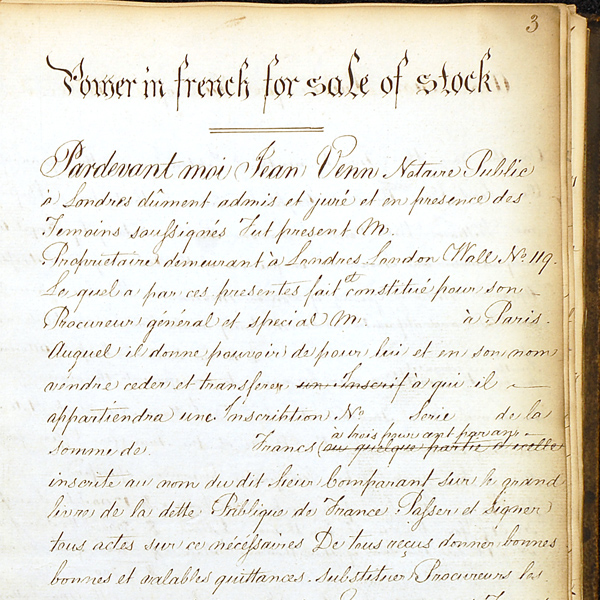 3
Power in french for sale of stock
Pardevant moi Jean Venn Notaire Public
à Londres dûment admis et juré et en presence des
Temoins soussignés Fut present M.
Proprietaire demeurant à Londres London Wall No. 119.
Le quel a par ces presentes fait et constitué pour son
Procureur général et special M. à Paris.
Auquel il donne pouvoir de pour lui et en son nom
vendre ceder et transferer un Inscrif à qui il
appartiendra une Inscribtion No. Serie de la
à trois pour cent par an
somme de Francs (ou quelque partie d'icelle
inscrite au nom du dit Sieur Comparant sur le grand
livre de la dette Publique de France Passer et Signer
tous actes sur ce nécéssaires De tous reçus donner bonnes
bonnes et valables quittances. Substituer Procureurs les